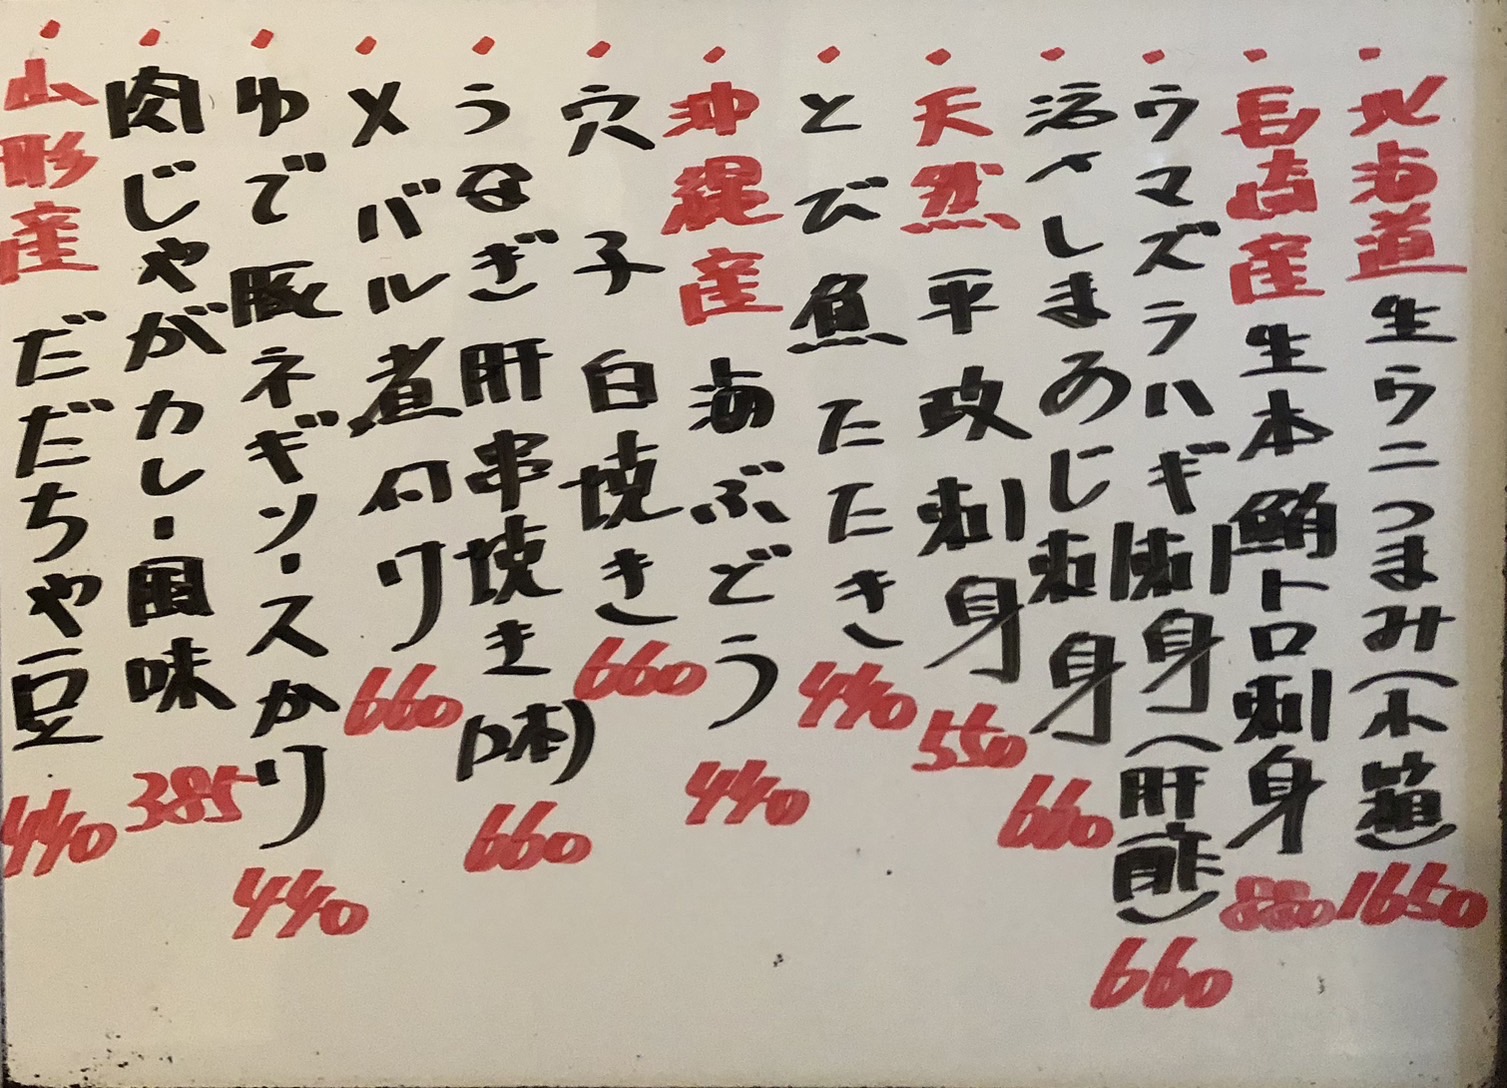 北海道 生ウニつまみ(小箱) 1650
長崎産 生本鮪トロ刺身 880
ウマズラハギ刺身(肝酢) 660
活〆しまあじ刺身 660
天然 平政刺身 550
とび魚たたき 440
沖縄産 海ぶどう 440
穴子白焼き 660
うなぎ肝串焼き(2本) 660
メバル煮付け 660
ゆで豚ネギソースかけ 440
肉じゃがカレー風味 385
山形産 だだちゃ豆 440